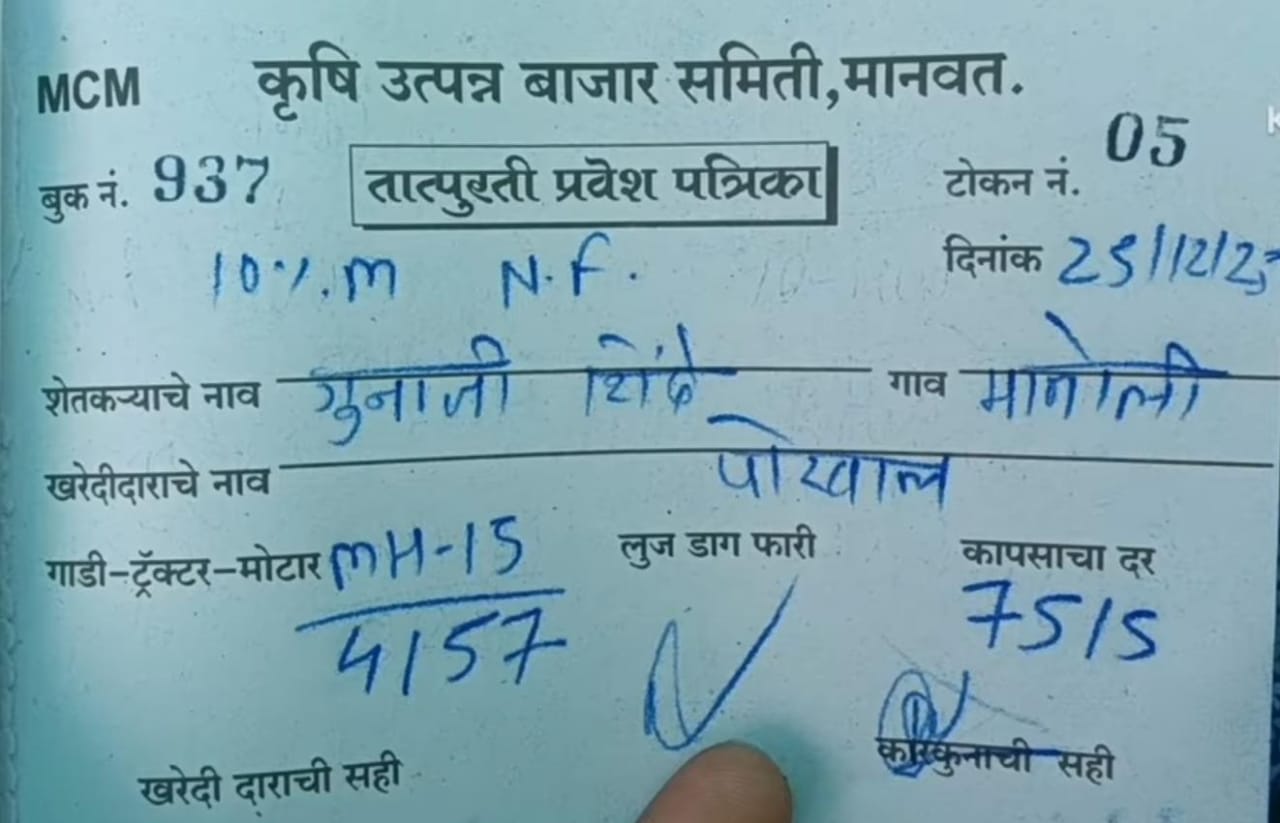 MCM कृषि उत्पन्न बाजार समिती,मानवत.
बुक नं. 937 तात्पुरती प्रवेश पत्रिका टोकन नं. 05
10%.m N.F. दिनांक 25/12/2
शेतकऱ्याचे नाव गुनाजी शिंदे गाव मानोली
खरेदीदाराचे नाव
गाडी-ट्रॅक्टर-मोटार MH-15 लुज डाग फारी कापसाचा दर
4157 7515
खरेदी दाराची सही कारकुनाची सही